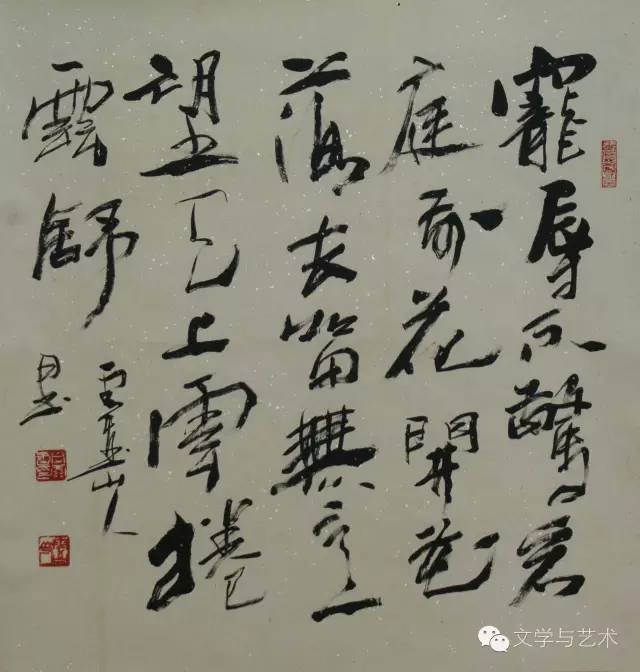 寵辱不驚看
庭前花開花
落去留無意
望天上雲捲
雲舒
山人
墨
文学与艺术